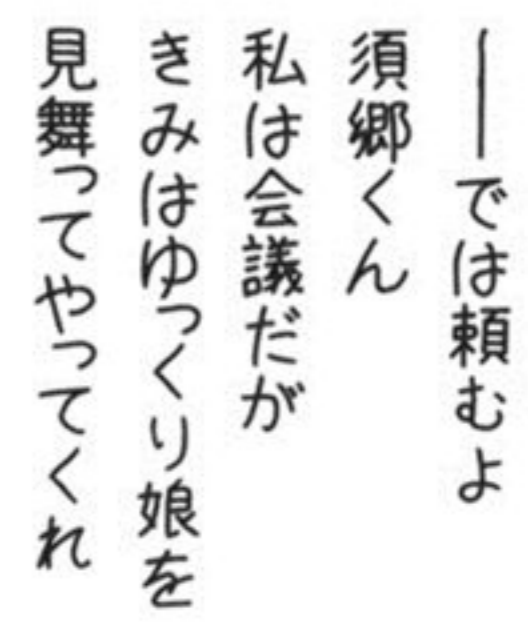 ――では頼むよ
須郷くん
私は会議だが
きみはゆっくり娘を
見舞ってやってくれ